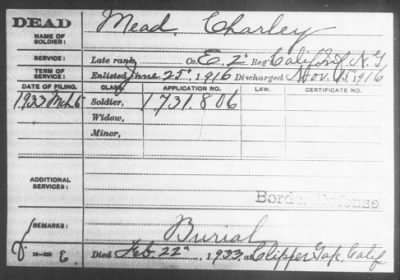 DEAD
Mead, Charley
NAME OF SOLDIER:
SERVICE:
Late rank, Co. E. 2" Reg. Calif Inf. N.G.
TERM OF SERVICE:
Enlisted June 25", 1916 Discharged Nov. 1916
DATE OF FILING. CLASS. APPLICATION NO. LAW. CERTIFICATE NO.
1933 Mch 6 Soldier, 1731806
Widow,
Minor,
ADDITIONAL SERVICES:
Border Defense
REMARKS:
Burial
Died Feb. 22", 1933, at Clipper Gap, Calif